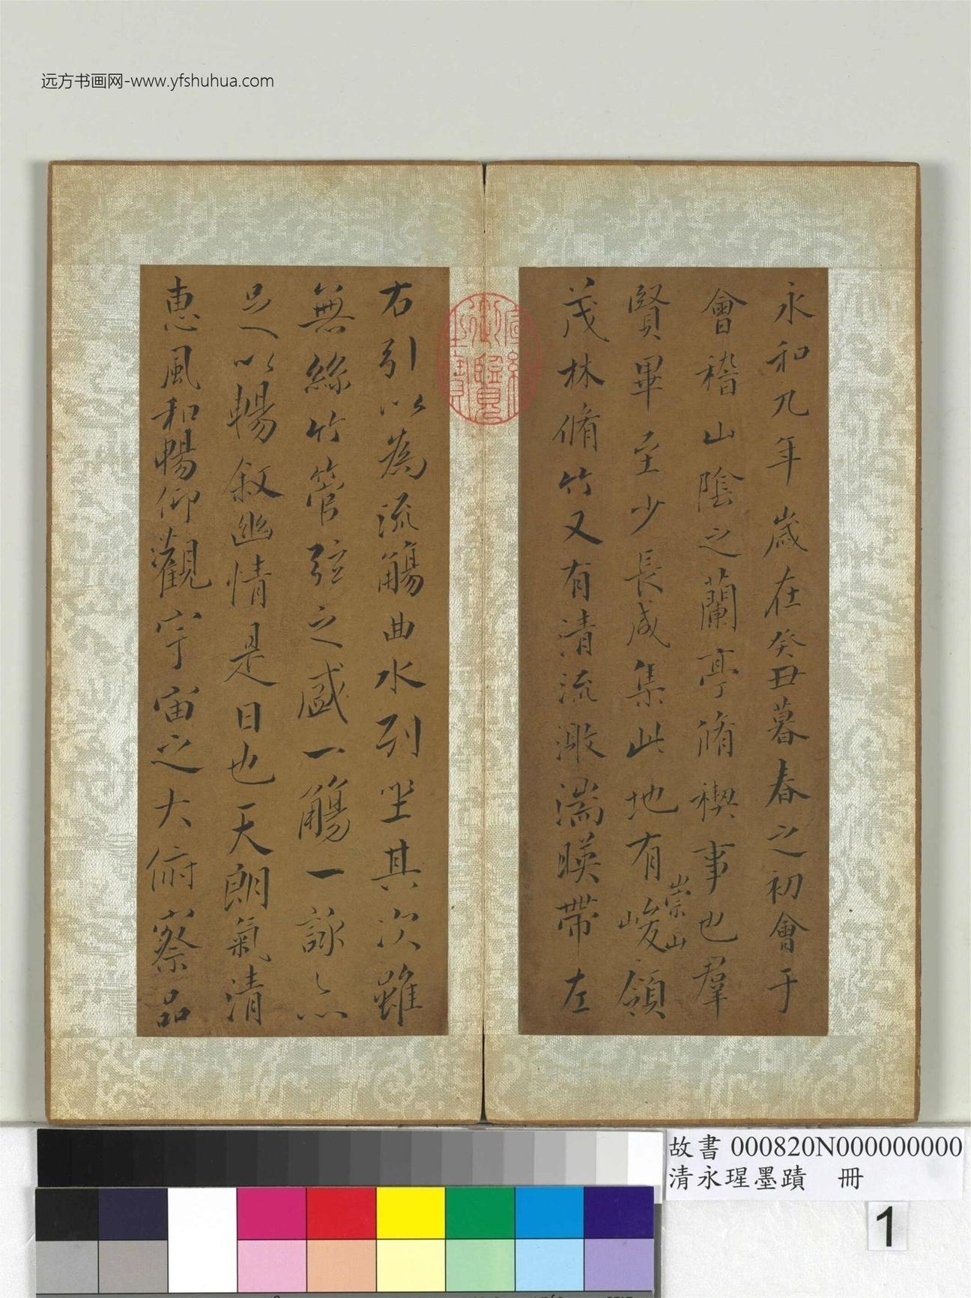 远方书画网-www.yfshuhua.com
永和九年歲在癸丑暮春之初會于
會稽山陰之蘭亭脩禊事也羣
賢畢至少長咸集此地有
崇山
峻領
茂林脩竹又有清流激湍暎帶左
右引以為流觴曲水列坐其次雖
無絲竹管弦之盛一觴一詠亦
足以暢叙幽情是日也天朗氣清
惠風和暢仰觀宇宙之大俯察品
御覽
故書 000820N000000000
清永瑆墨蹟 冊
1